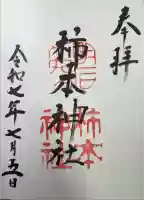 奉拝
柿本神社
柿本
神社
令和七年七月五日